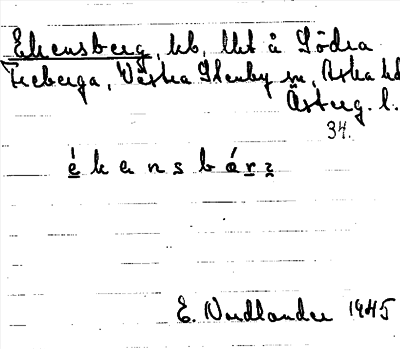 Ekensberg, kb, lht å Södra
Freberga, Västra Stenby sn, Aska hd
Österg. l.
34.
é k e n s b á r z
E. Nordlander 1945